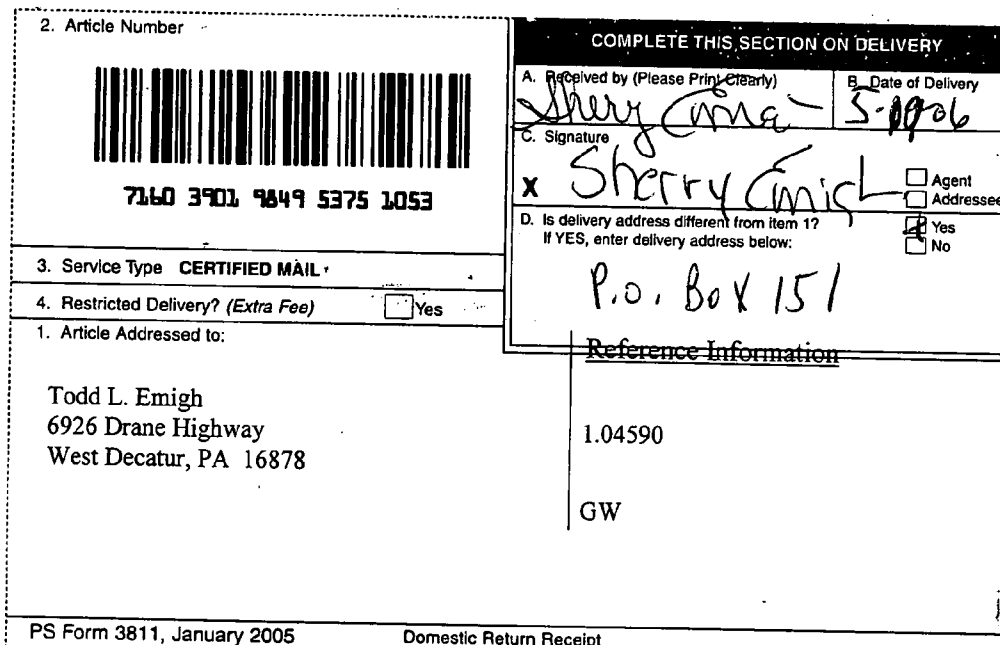 2. Article Number
7160 3901 9849 5375 1053
3. Service Type CERTIFIED MAIL
4. Restricted Delivery? (Extra Fee) Yes
1. Article Addressed to:
Todd L. Emigh
6926 Drane Highway
West Decatur, PA 16878
COMPLETE THIS SECTION ON DELIVERY
A. Received by (Please Print Clearly)
B. Date of Delivery
C. Signature
X Sherry Emigh
Agent
Addressee
D. Is delivery address different from item 1?
If YES, enter delivery address below:
Yes
No
P.O. Box 151
Reference Information
1.04590
GW
PS Form 3811, January 2005
Domestic Return Receipt